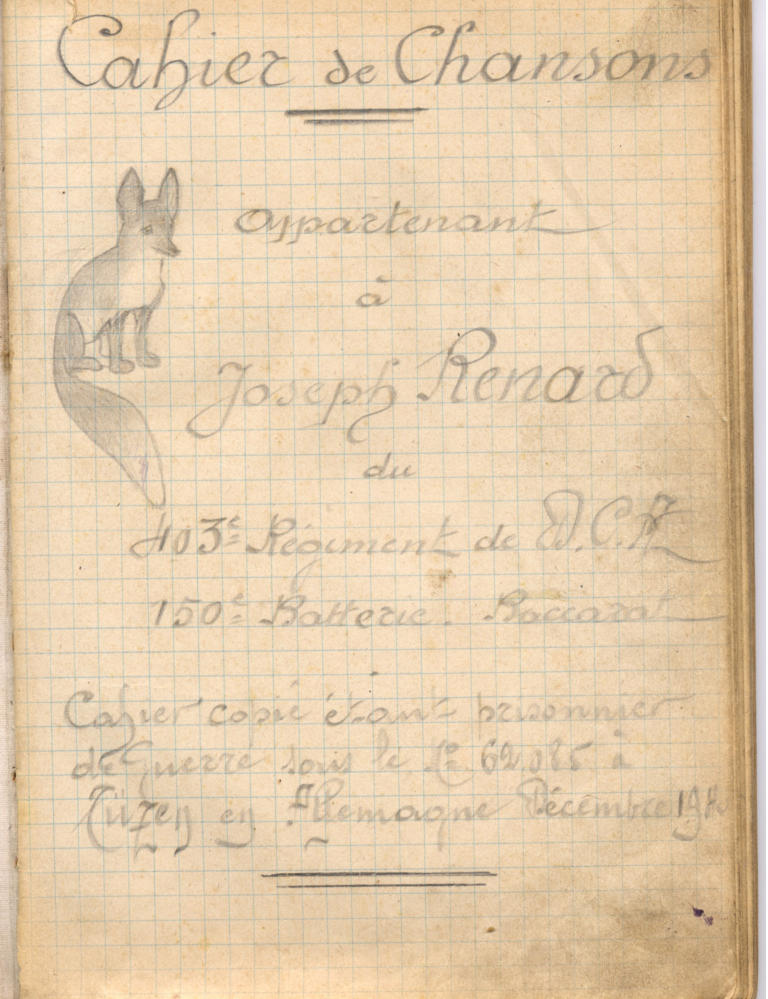 Cahier de Chansons
appartenant
à
Joseph Renard
du
403e Régiment de D.C.A
150e Batterie. Baccarat
Cahier copié étant prisonnier
de guerre sous le No 62.085 à
en Allemagne Décembre